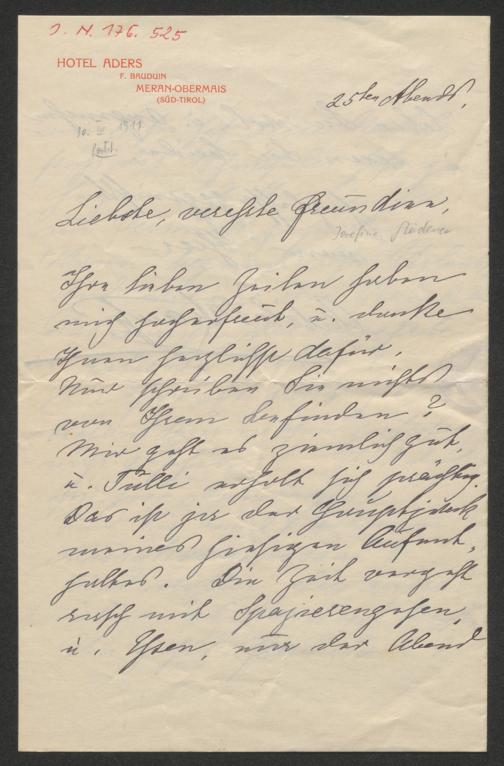 J. N. 176.525
HOTEL ADERS
F. BAUDUIN
MERAN-OBERMAIS
(SÜD-TIROL)
25ten Abends,
1911
Liebste, verehrte Freundinn,
Josefine
Ihre lieben Zeilen haben
mich hocherfreut, u. danke
Ihnen herzlichst dafür.
Nur schreiben Sie nichts
von Ihrem Befinden?
Mir geht es ziemlich gut,
u. Tulli erholt sich prächtig.
Das ist ja der Hauptzweck
meines hiesigen Aufent-
haltes. Die Zeit vergeht
rasch mit Spazierengehen,
u. Essen, nur der Abend